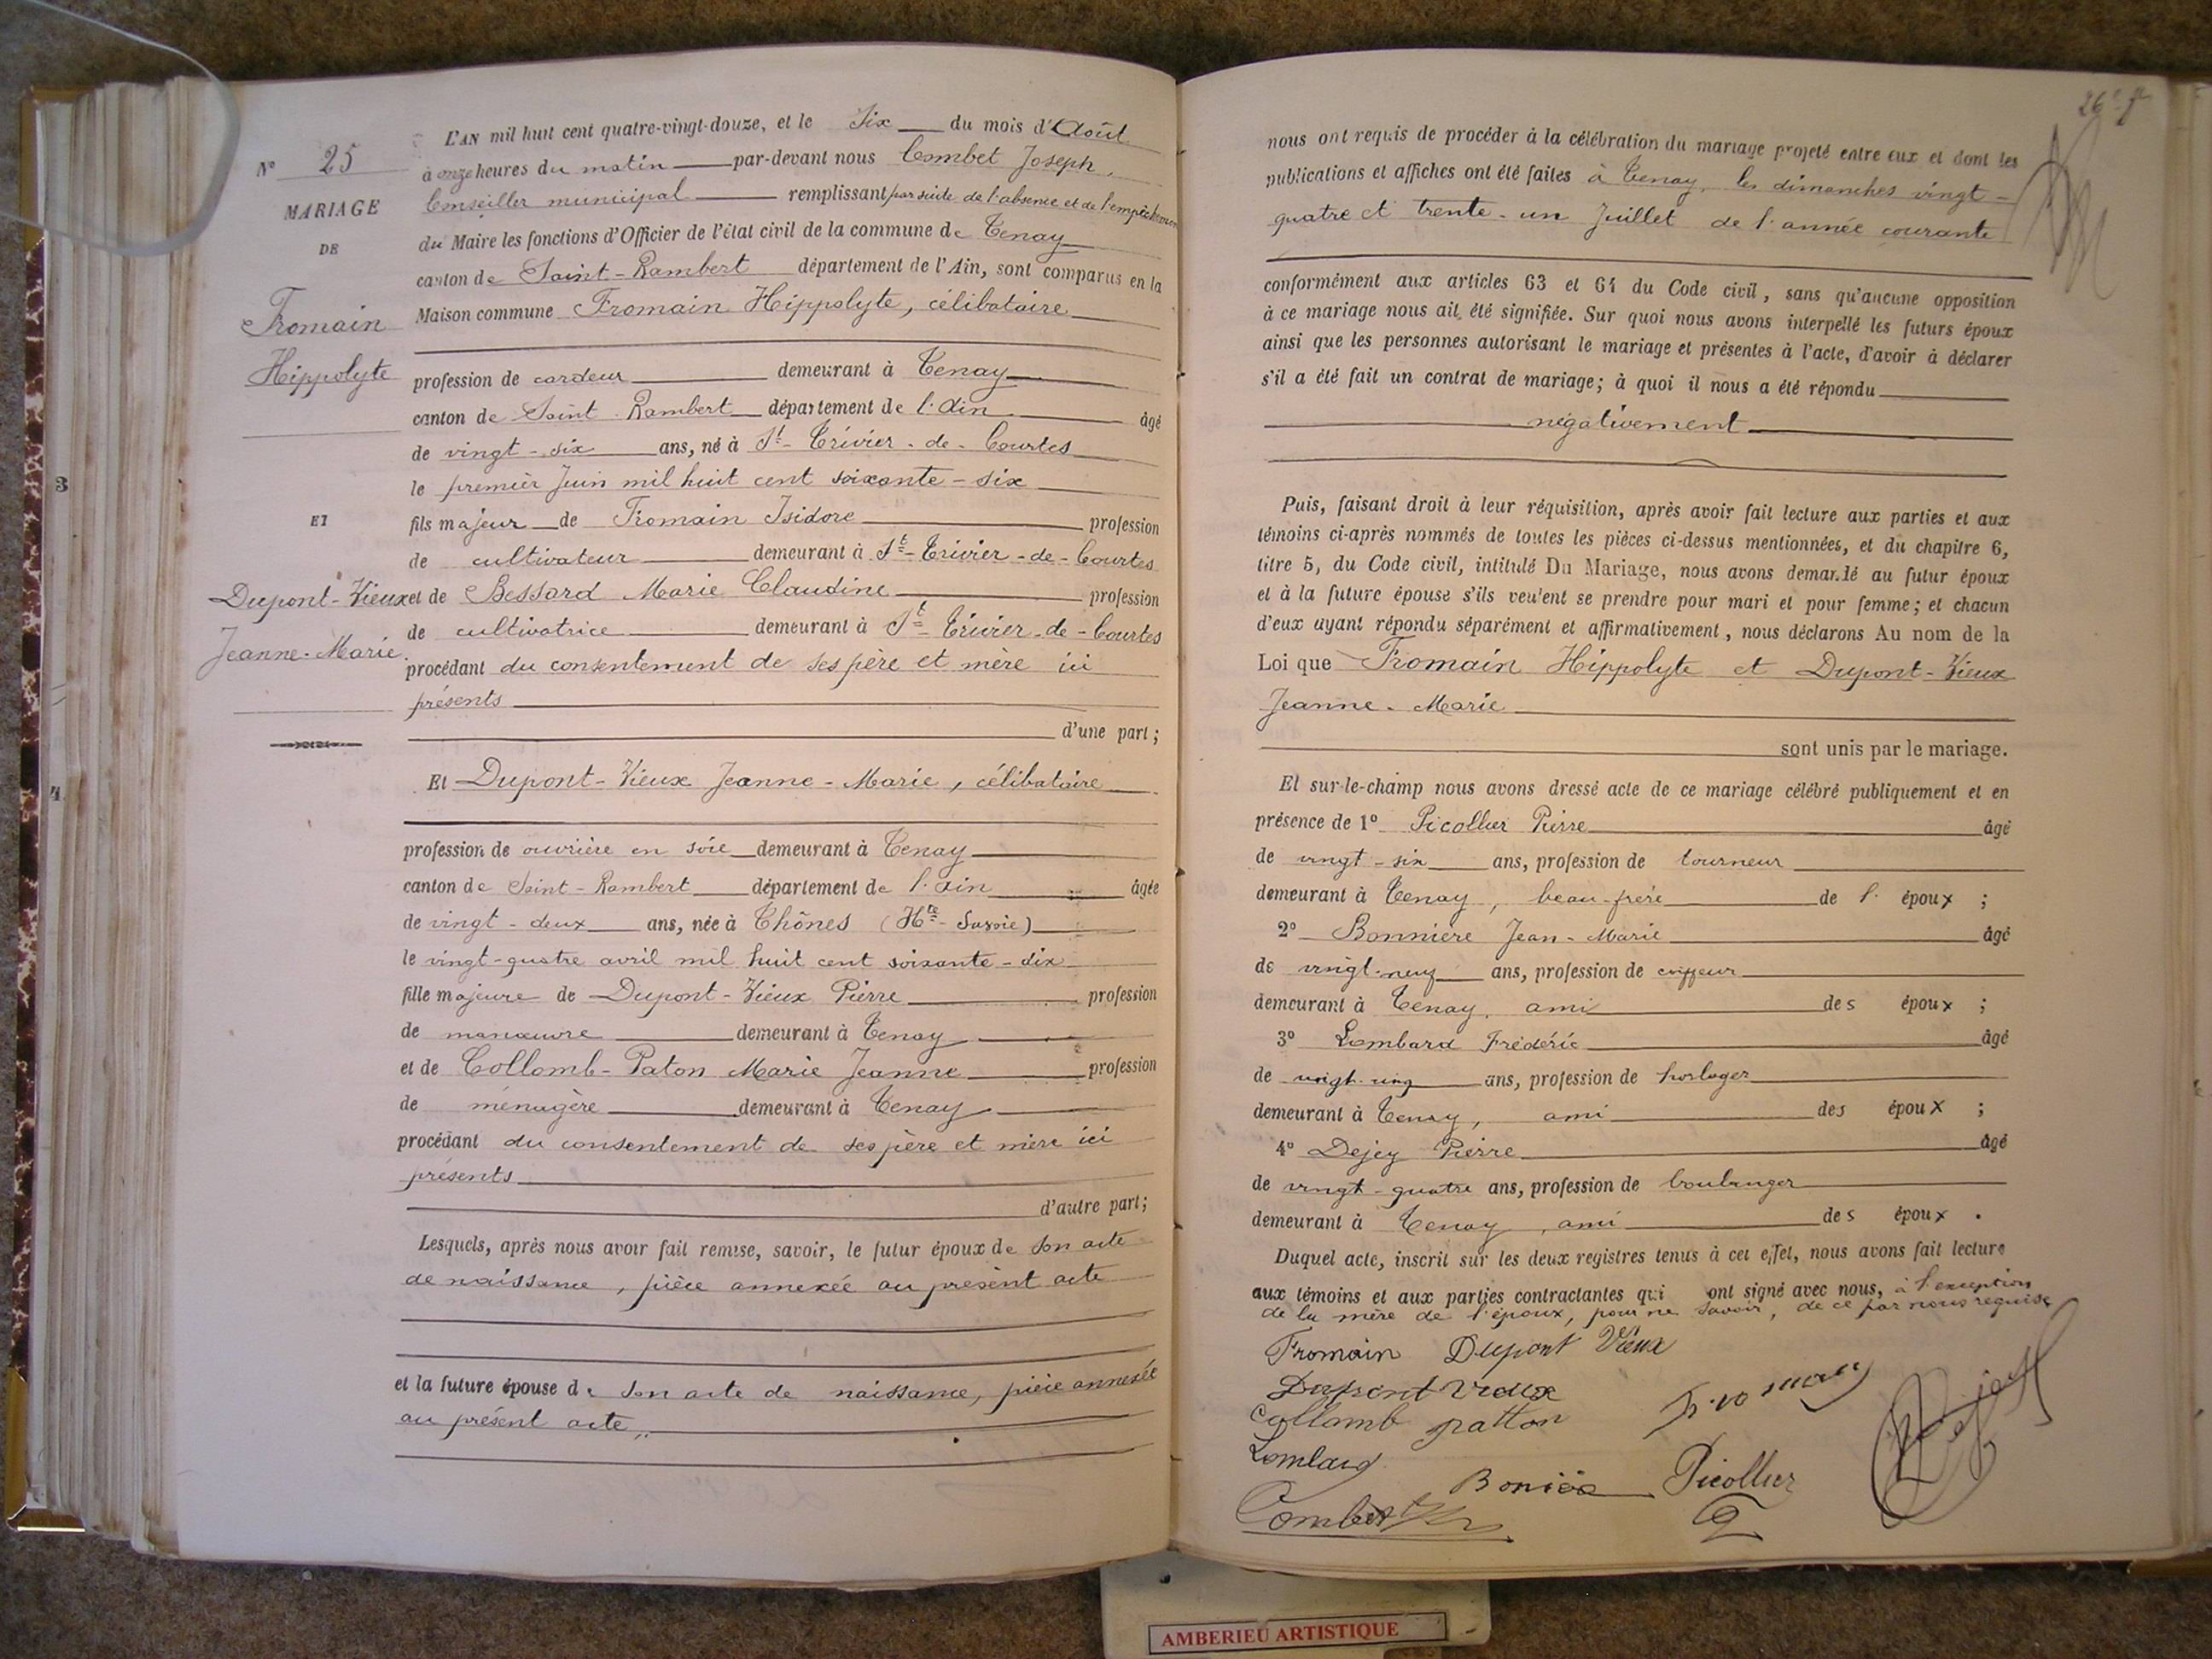 L'AN mil huit cent quatre-vingt-douze, et le Six du mois d'Août
à onze heures du matin par-devant nous Combet Joseph,
Conseiller municipal remplissant par suite de l'absence et de l'empêchement
du Maire les fonctions d'Officier de l'état civil de la commune de Tenay
canton de Saint-Rambert département de l'Ain, sont comparus en la
Maison commune Fromain Hippolyte, célibataire
profession de cardeur demeurant à Tenay
canton de Saint-Rambert département de l'Ain âgé
de vingt-six ans, né à St-Trivier-de-Courtes
le premièr Juin mil huit cent soixante-six
fils majeur de Fromain Isidore profession
de cultivateur demeurant à St-Trivier-de-Courtes
et de Bessard Marie Claudine profession
de cultivatrice demeurant à St-Trivier-de-Courtes
procédant du consentement de ses père et mère ici
présents
d'une part;
Et Dupont-Vieux Jeanne-Marie, célibataire
profession de ouvrière en soie demeurant à Tenay
canton de Saint-Rambert département de l'Ain âgée
de vingt-deux ans, née à Thônes (Hte-Savoie)
le vingt-quatre avril mil huit cent soixante-dix
fille majeure de Dupont-Vieux Pierre profession
de manœuvre demeurant à Tenay
et de Collomb-Paton Marie Jeanne profession
de ménagère demeurant à Tenay
procédant du consentement de ses père et mère ici
présents
d'autre part;
Lesquels, après nous avoir fait remise, savoir, le futur époux de son acte
de naissance, pièce annexée au présent acte
et la future épouse de son acte de naissance, pièce annexée
au présent acte
N° 25
MARIAGE
DE
Fromain
Hippolyte
ET
Dupont-Vieux
Jeanne-Marie
3
4
26e f
nous ont requis de procéder à la célébration du mariage projeté entre eux et dont les
publications et affiches ont été faites à Tenay, les dimanches vingt-
quatre et trente-un Juillet de l'année courante
conformément aux articles 63 et 64 du Code civil, sans qu'aucune opposition
à ce mariage nous ait été signifiée. Sur quoi nous avons interpellé les futurs époux
ainsi que les personnes autorisant le mariage et présentes à l'acte, d'avoir à déclarer
s'il a été fait un contrat de mariage; à quoi il nous a été répondu
négativement
Puis, faisant droit à leur réquisition, après avoir fait lecture aux parties et aux
témoins ci-après nommés de toutes les pièces ci-dessus mentionnées, et du chapitre 6,
titre 5, du Code civil, intitulé Du Mariage, nous avons demandé au futur époux
et à la future épouse s'ils veulent se prendre pour mari et pour femme; et chacun
d'eux ayant répondu séparément et affirmativement, nous déclarons Au nom de la
Loi que Fromain Hippolyte et Dupont-Vieux
Jeanne-Marie
sont unis par le mariage.
Et sur-le-champ nous avons dressé acte de ce mariage célébré publiquement et en
présence de 1° Picollier Pierre âgé
de vingt-six ans, profession de tourneur
demeurant à Tenay, beau-frère de l'époux ;
2° Bonnière Jean-Marie âgé
de vingt-neuf ans, profession de coiffeur
demeurant à Tenay, ami des époux ;
3° Lombard Frédéric âgé
de vingt-cinq ans, profession de horloger
demeurant à Tenay, ami des époux ;
4° Dejey Pierre âgé
de vingt-quatre ans, profession de boulanger
demeurant à Tenay, ami des époux .
Duquel acte, inscrit sur les deux registres tenus à cet effet, nous avons fait lecture
aux témoins et aux parties contractantes qui ont signé avec nous, à l'exception
de la mère de l'époux, pour ne savoir, de ce par nous requise
Fromain Dupont Vieux
Dupont Vieux
Collomb patton
Lombard
Picollier
Combet
AMBERIEU ARTISTIQUE